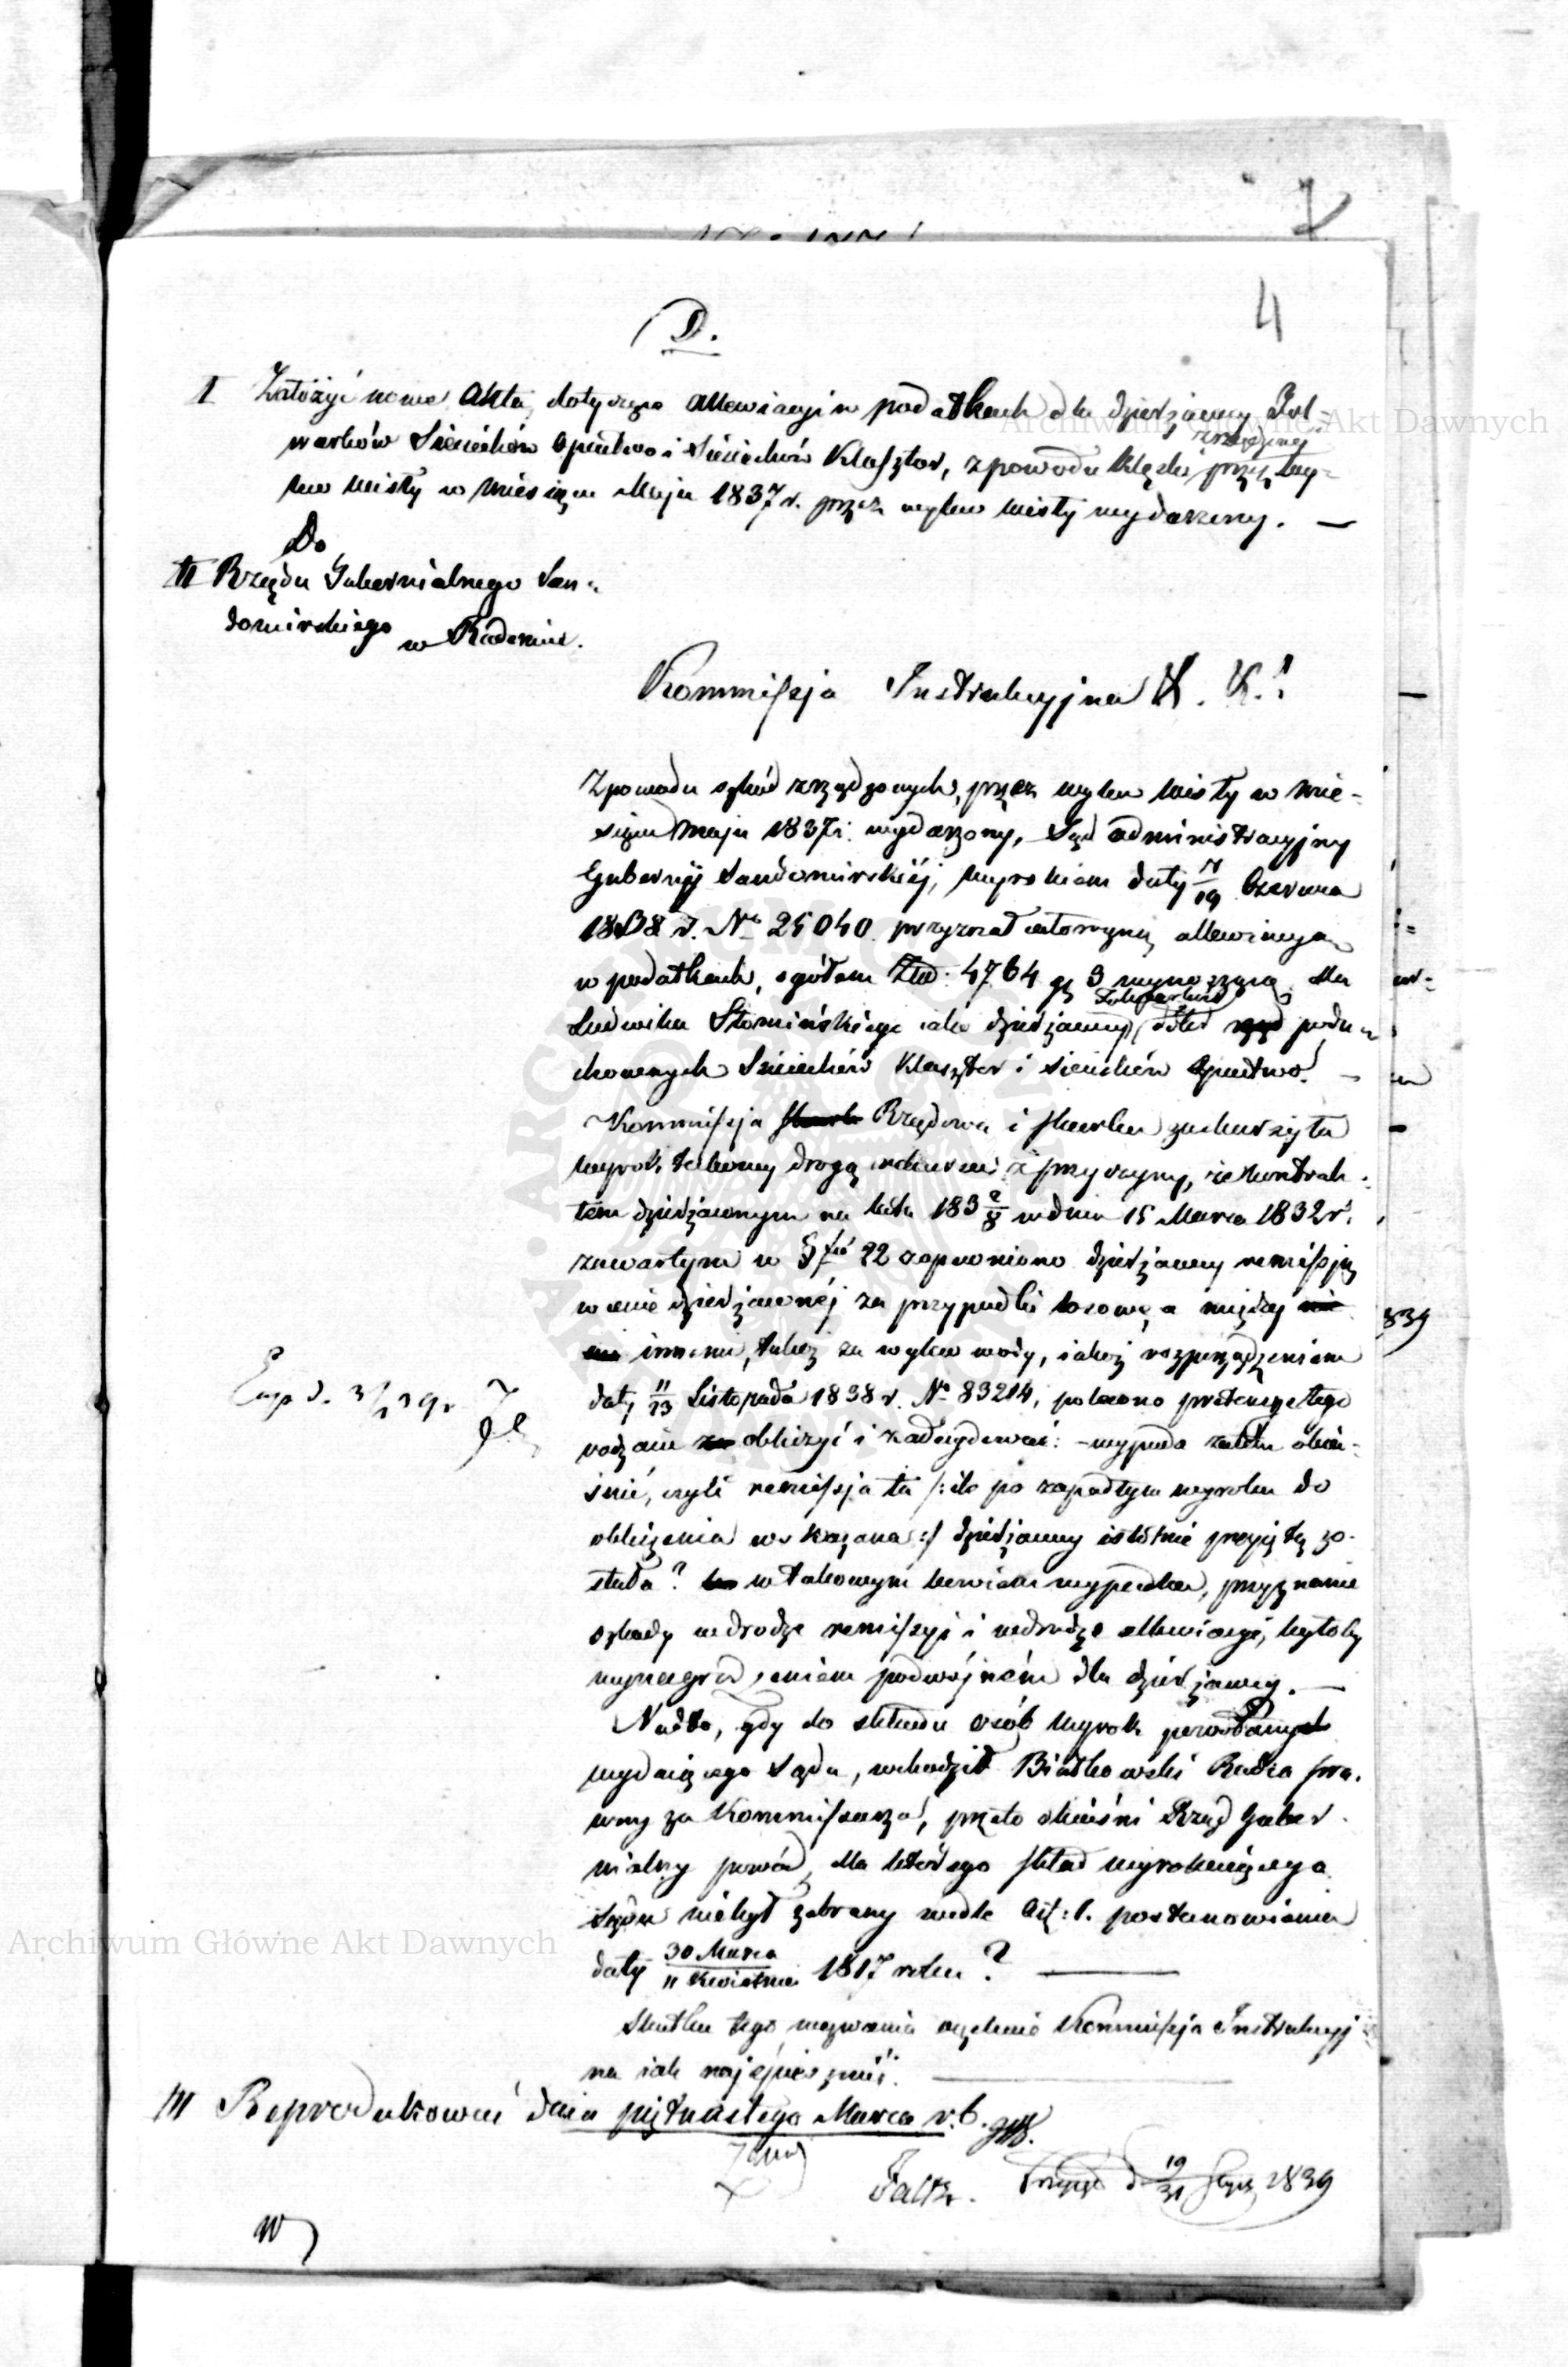 4
D.
I Założyć nowe Akta, dotyczące allewiacyi w podatkach dla dzierżawcy Fol=
warków Sieciechów Opactwo i Sieciechów Klasztor, z powodu klęski zrządzonej przez wy=
lew Wisły w miesiącu Maju 1837 r. przez wylew Wisły wydarzony. —
Do
II Rządu Gubernialnego San=
domirskiego w Radomiu.
Kommissja Instrukcyjna
Z powodu szkód zrządzonych, przez wylew Wisły w mie=
siącu Maju 1837 r. wydarzony, Sąd administracyjny
Gubernij Sandomirskiéj, wyrokiem daty /19 Czerwca
1838 r. No 25040 przyznał allewiacyą
w podatkach, ogółem Złp. 4764 gr 3 wynoszącą dla
Ludwika Słomińskiego jako dzierżawcy Folwarków dóbr podu=
chownych Sieciechów Klasztor i Sieciechów Opactwo. —
Kommissja Rządowa i Skarbu zaskarżyła
wyrok takowy drogą rekursu z przyczyny, że kontrak=
tem dzierżawnym na lata 183 2/8 w dniu 15 Marca 1832 r.
zawartym w § 22 zapewniono dzierżawcy remissję
w cenie dzierżawnéj za przypadki losowe, a między
innemi, także za wylew wody, jakoż rozporządzeniem
daty 11/23 Listopada 1838 r. No 83214, polecono pretensye tego
rodzaju obliczyć i zadecydować: – wypada zatem obja=
śnić, czyli remissja ta /: ile po zapadłym wyroku do
obliczenia wskazana :/ dzierżawcy istotnie przyjętą zo=
stała? w takowym bowiem wypadku, przyznanie
szkody w drodze remissyi i w drodze allewiacyi, byłoby
wynagrodzeniem podwójném dla dzierżawcy. —
Nadto, gdy do składu osób wyrok powołany
wydającego Sądu, wchodził Białkowski Radca pra=
wny za Kommissarza, przeto objaśni Rząd Guber=
nialny powód, dla którego skład wyrokującego
Sądu niebył zebrany wedle Art: 1. postanowienia
daty 30 Marca / 11 Kwietnia 1817 roku? —
Skutku tego wezwania oczekuje Kommissja Instrukcyj=
na jak najśpieszniéj. —
Exp d. 3/2 39 r.
839
III Reprodukować dnia piętnastego Marca r. b.
d 19/31 Stycz 1839
Archiwum Główne Akt Dawnych
Archiwum Główne Akt Dawnych